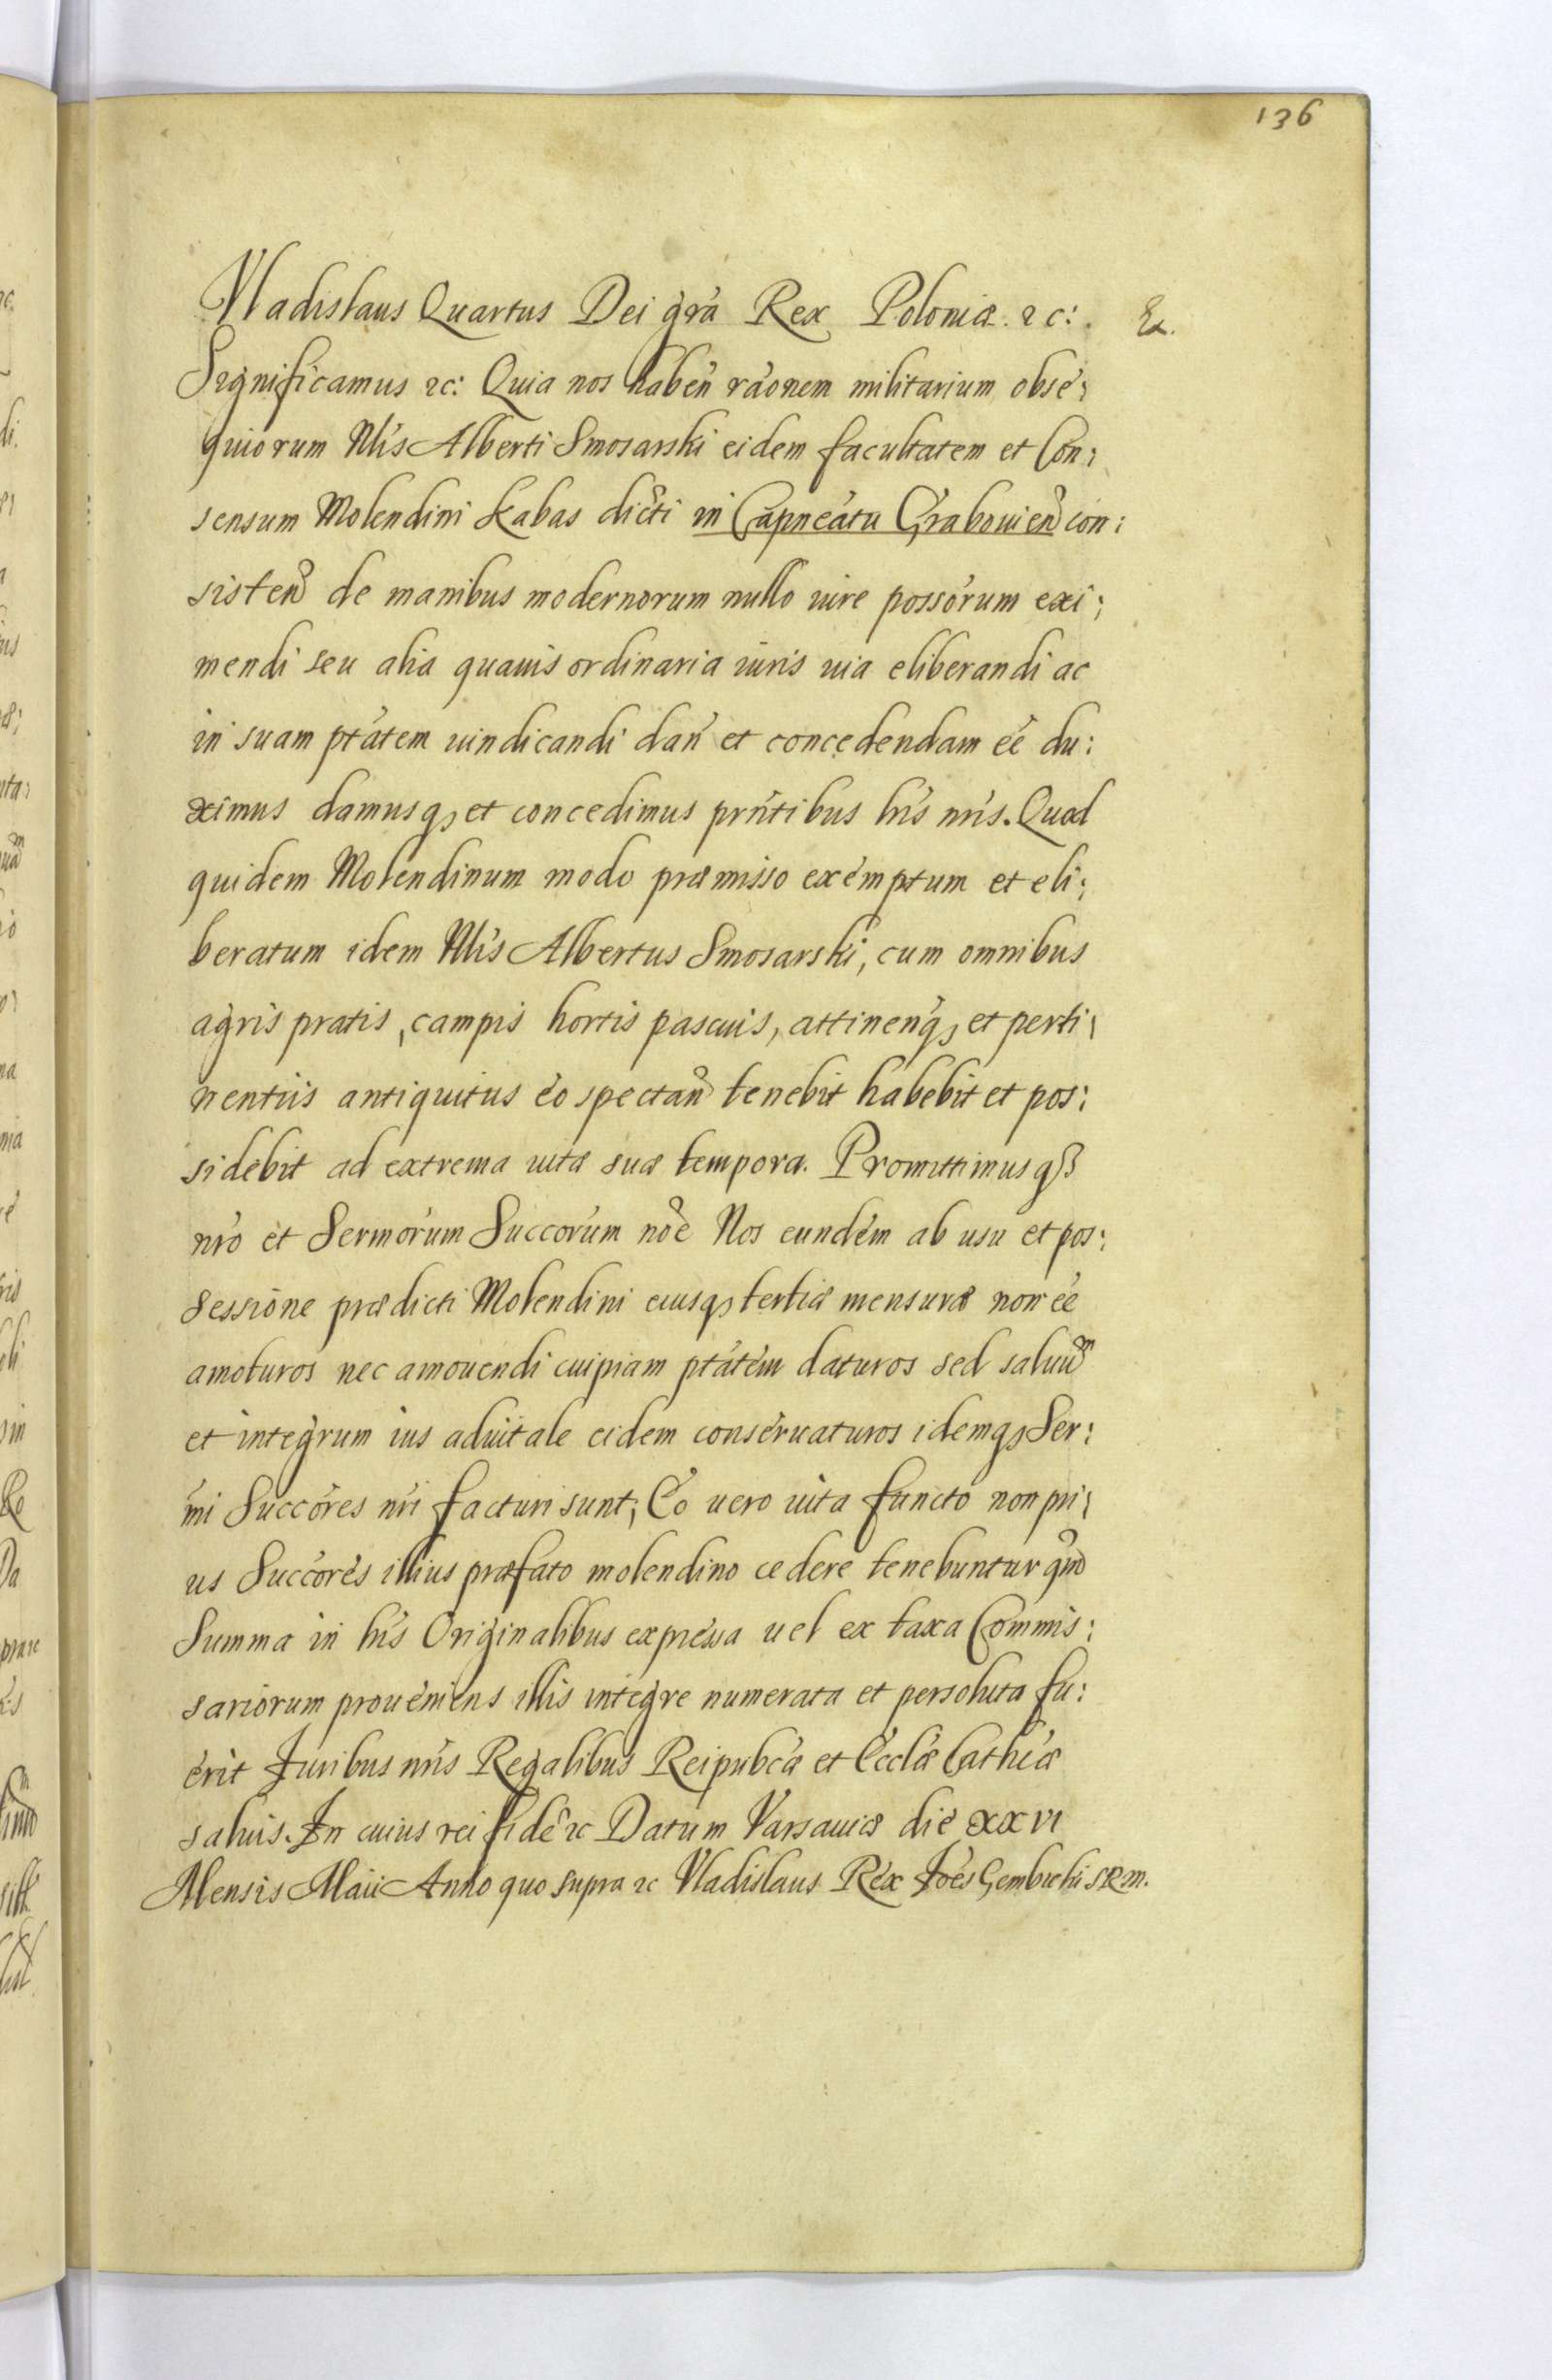 136
Vladislaus Quartus Dei grã Rex Poloniæ. &c:. Ex.
Significamus &c: Quia nos habeñ rãonem militarium obse:
quiorum Nlis Alberti Smosarski eidem facultatem et Con:
sensum Molendini Kabas dicti in Capneatu Grabouieñ con:
sisteñ de manibus modernorum nullo iure possorum exi:
mendi seu alia quauis ordinaria iuris uia eliberandi ac
in suam ptatem uindicandi dañ et concedendam ee du:
ximus damusq₃ et concedimus prntibus lris nris. Quod
quidem Molendinum modo præmisso exemptum et eli:
beratum idem Nlis Albertus Smosarski, cum omnibus
agris pratis, campis hortis pascuis, attinenq₃ et perti:
nentiis antiquitus eo spectañ tenebit habebit et pos:
sidebit ad extrema uitæ suæ tempora. Promittimusq₃
nro et Sermorum Succorum noe Nos eundem ab usu et pos:
sessione prædicti Molendini eiusq₃ tertiæ mensuræ non ee
amoturos nec amouendi cuipiam ptatem daturos sed saluũ
et integrum ius aduitale eidem conseruaturos idemq₃ Ser:
mi Succores nri facturi sunt; Eo uero uita functo non pri:
us Succores illius præfato molendino cedere tenebuntur qm̃
Summa in lris Originalibus expressa uel ex taxa Commis:
sariorum proueniens illis integre numerata et persoluta fu:
erit Iuribus nris Regalibus Reipubcæ et Ecclæ Cathcæ
saluis. In cuius rei fidẽ &c Datum Varsauiæ die XXVI
Mensis Maii Anno quo supra &c Vladislaus Rex Ioes Gembicki SRM.